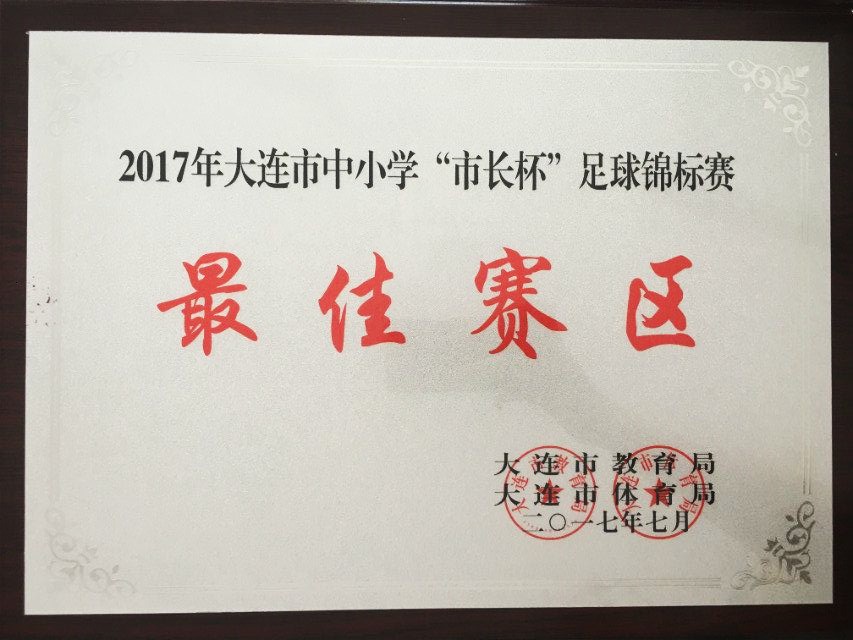 2017年大连市中小学“市长杯”足球锦标赛
最佳赛区
大连市教育局
大连市体育局
二〇一七年七月